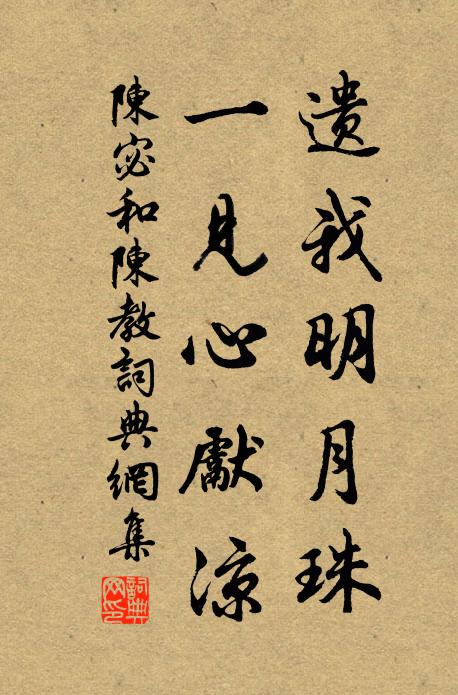 遺我明月珠
一見心獻涼
陳宓和陳教詞典網集
詞典網印